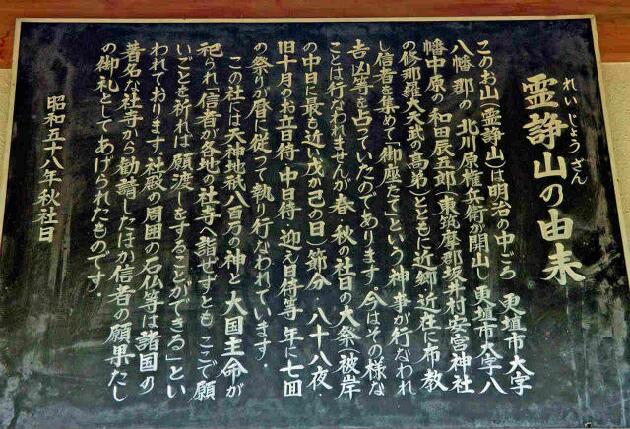 霊諍山の由来
れいじょうざん
このお山(霊諍山)は明治の中ごろ 更埴市大字
八幡郡の 北川原権兵衛が開山し 更埴市大字八
幡中原の和田辰五郎(東筑摩郡坂井村安宮神社
の修那羅大天武の高弟)とともに近郷近在に布教
し信者を集めて「御座たて」という神事が行なわれ
吉凶等を占っていたのであります。今はその様な
ことは行なわれませんが春、秋の社日の大祭(彼岸
の中日に最も近い戊か己の日)節分・八十八夜・
旧十月のお立日待、中日待、迎え日待等一年に七回
の祭りが暦に従って執り行なわれています。
この社には天神地祇八百万の神と大国主命が
祀られ「信者が各地の社寺へ詣ぜずとも ここで願
いごとを祈れば願渡しをすることができる」とい
われております。社殿の周囲の石仏等は諸国の
著名な社寺から勧請したほか信者の願果たし
の御礼としてあげられたものです。
昭和五十八年秋社日